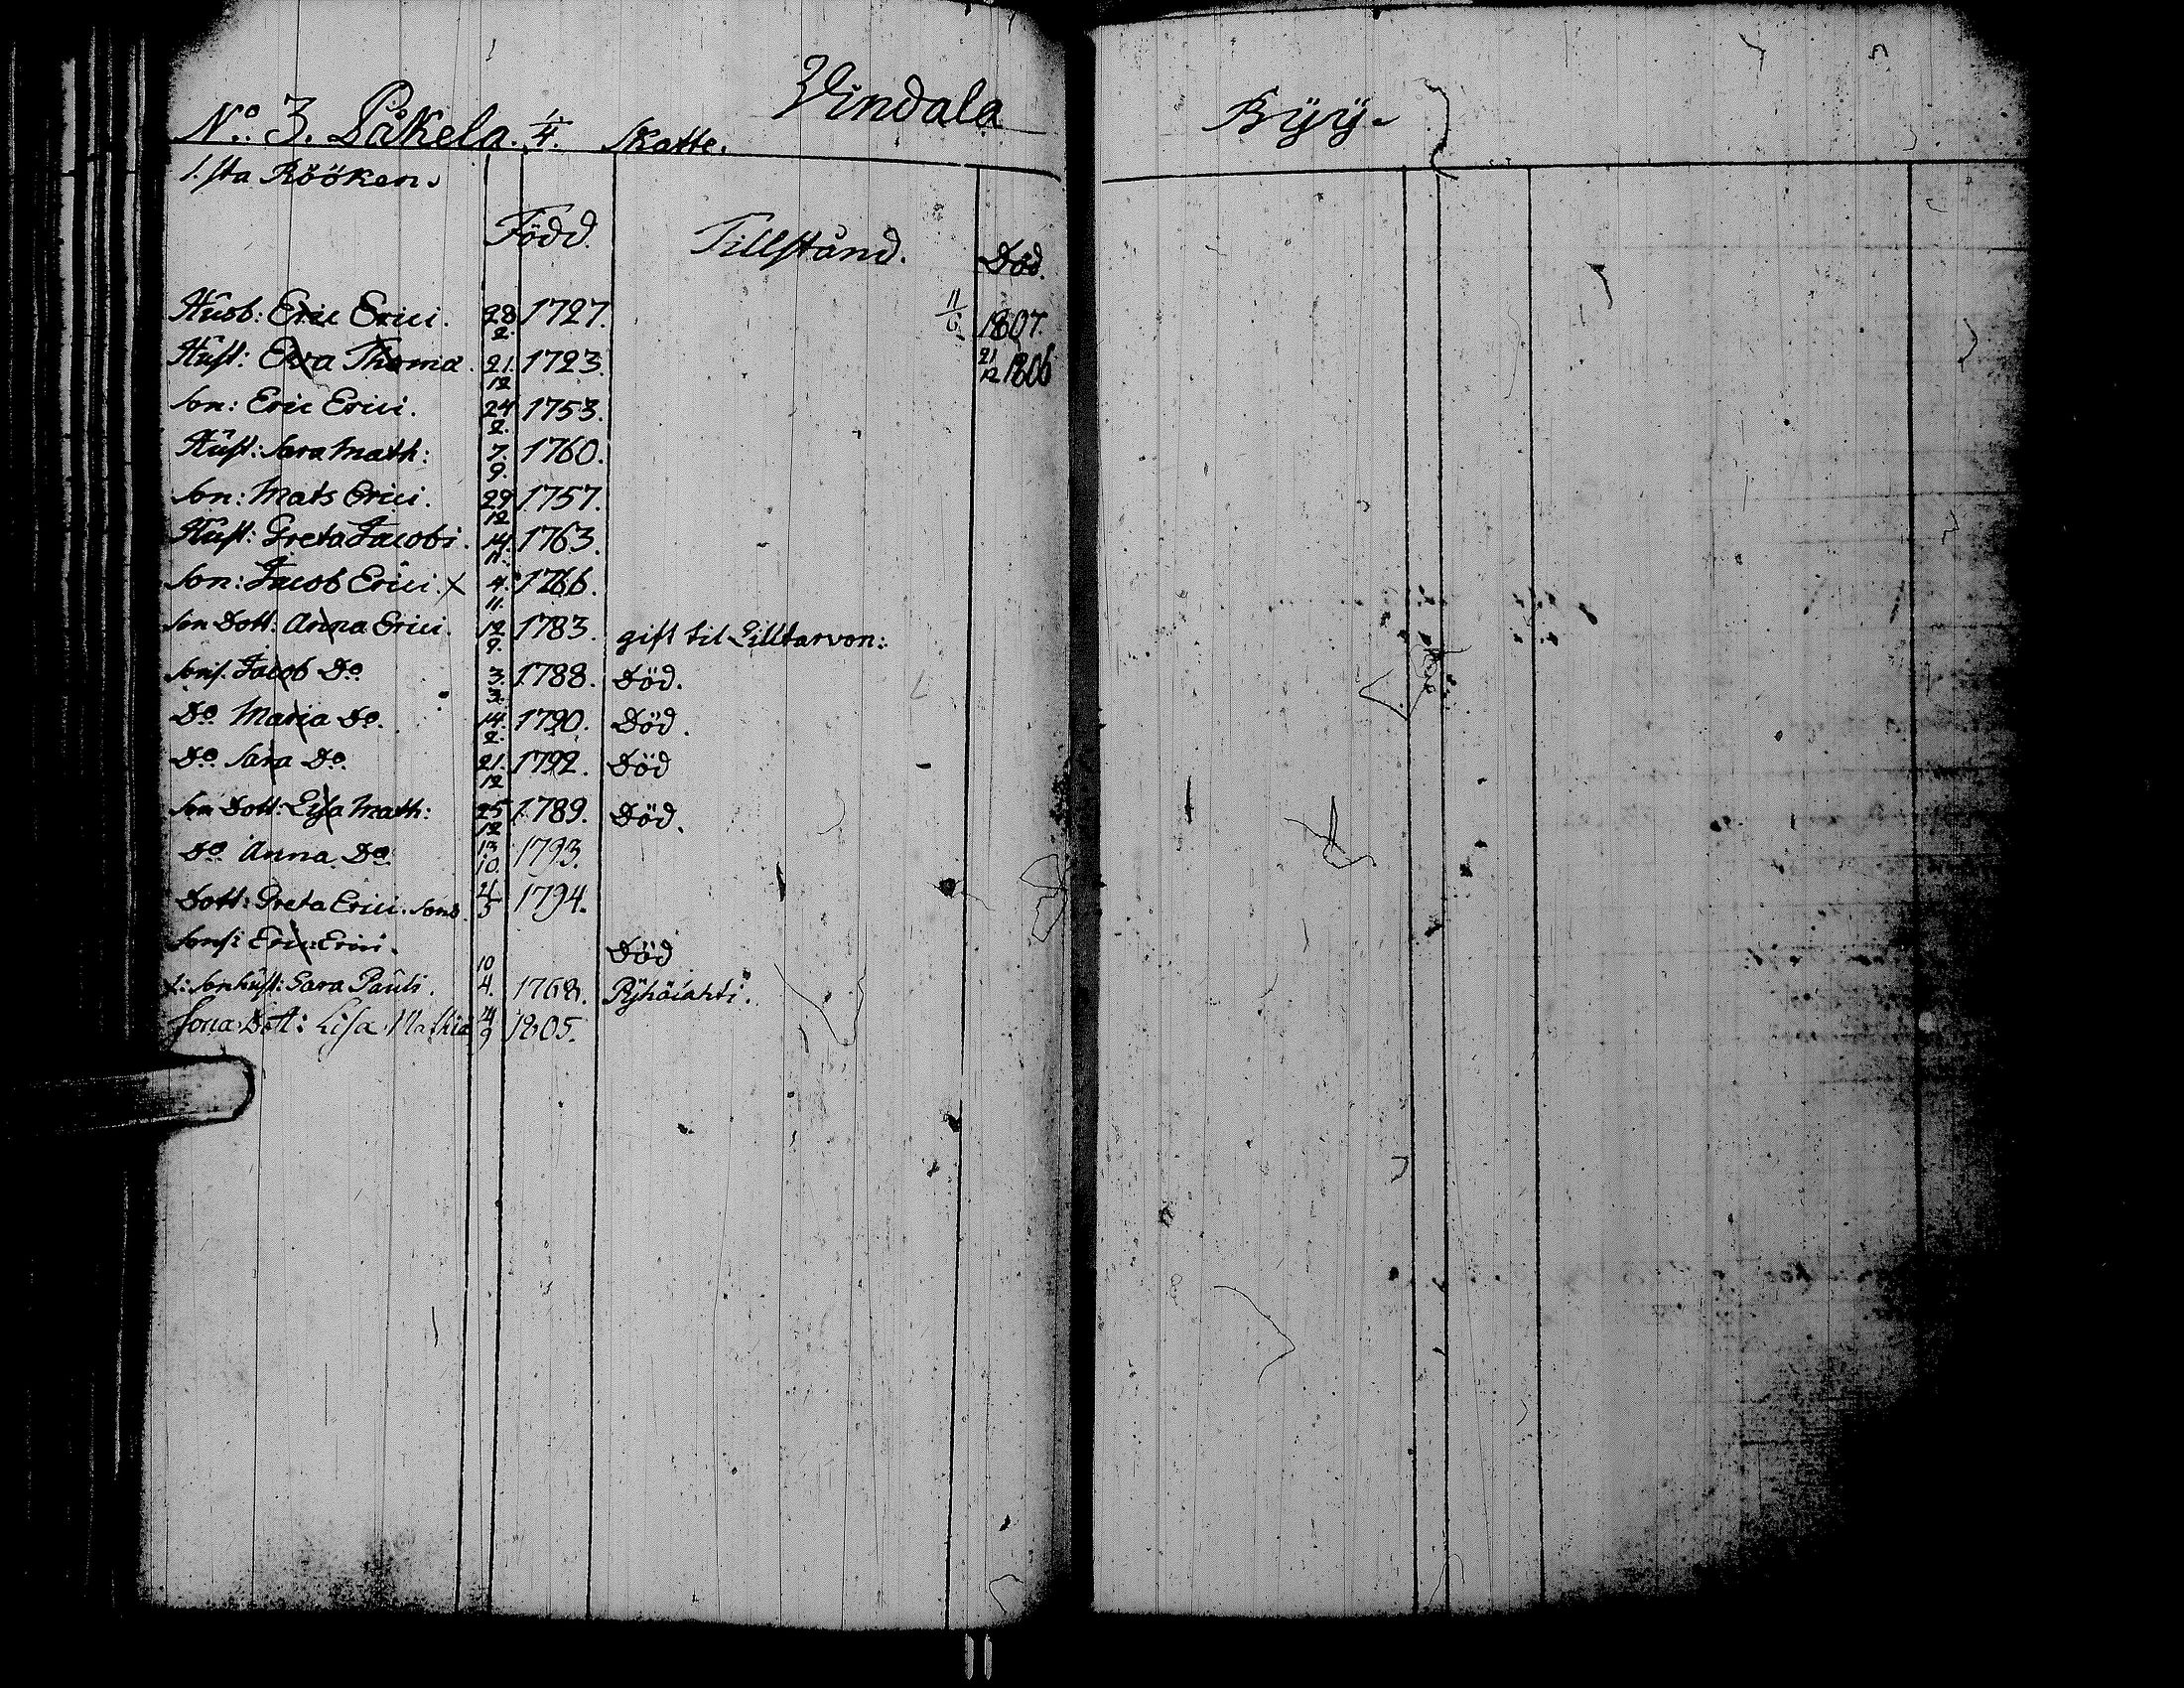 Vindala Byÿ.
No: 3. Påkela. 1/4. Skatte.
1. sta Rööken.
Född. Tillstånd. Död.
Husb: Eric Erici. 28/2. 1727. 11/6 1807.
Hust: Eva Thoma. 21./12 1723. 21/12 1806
Son: Eric Erici. 24/2. 1753.
Hust: Sara Math: 7./9. 1760.
Son: Mats Erici. 29/12 1757.
Hust: Greta Jacobi. 14./11. 1763.
Son: Jacob Erici. x 4./11. 1766.
Son Dott: Anna Erici. 12/9. 1783. gift til Lilltarvon:
Sons. Jacob Do. 3./3. 1788. Död.
Do. Maria Do. 14./2. 1790. Död.
Do. Sara Do. 21./12 1792. Död
Son Dott: Lisa Math: 25/12 1789. Död.
Do. Anna Do. 13/10. 1793.
Dott: Greta Erici. Sons. 4/5 1794.
Sons: Eric Erici. Död
1: Sonhust: Sara Pauli. 10/4. 1768. Pÿhälahti.
Sona Dott: Lisa Mathia 4/9 1805.